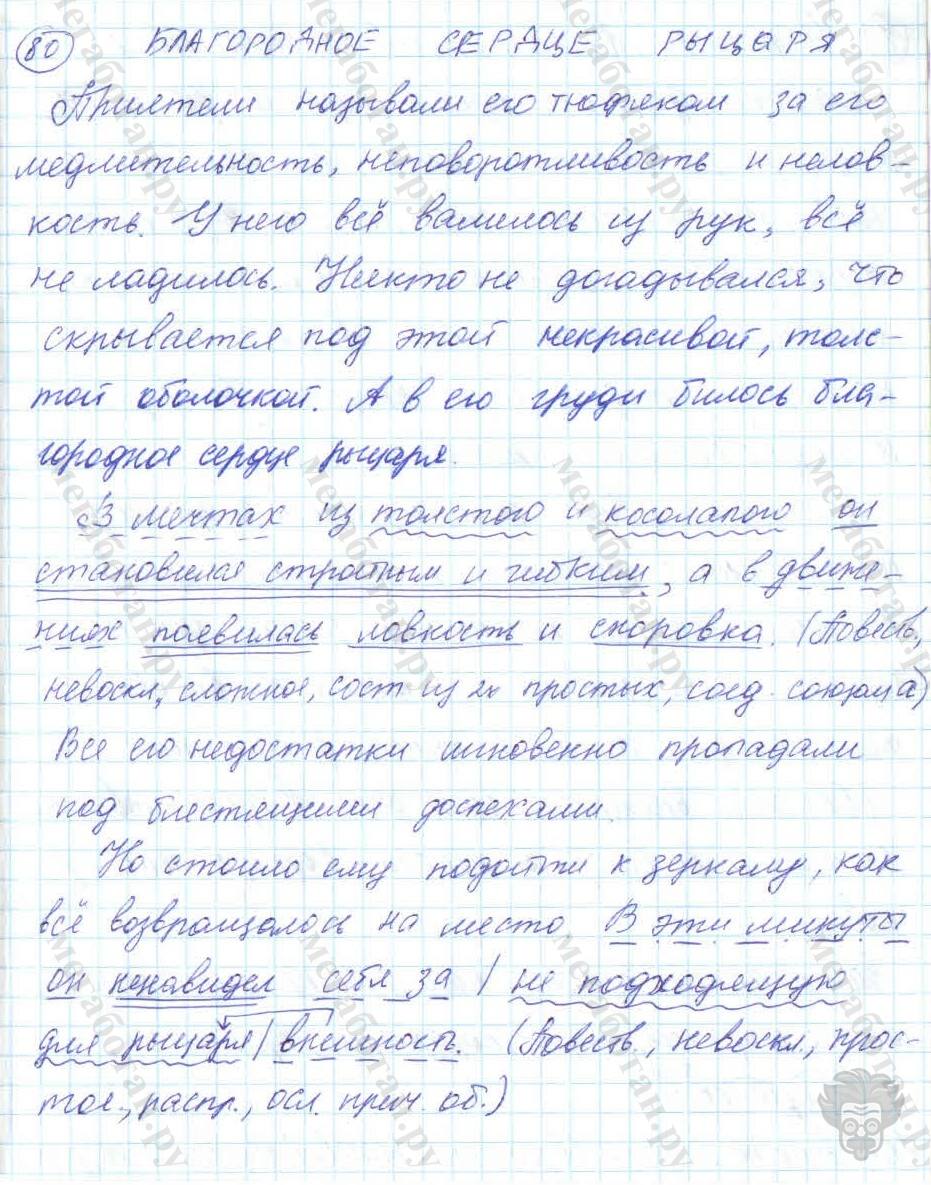 80 БЛАГОРОДНОЕ СЕРДЦЕ РЫЦАРЯ
Приятели называли его тюфяком за его
медлительность, неповоротливость и нелов-
кость. У него всё валилось из рук, всё
не ладилось. Никто не догадывался, что
скрывается под этой некрасивой, толс-
той оболочкой. А в его груди билось бла-
городное сердце рыцаря.
В мечтах из толстого и косолапого он
становился стройным и гибким, а в движе-
ниях появилась ловкость и сноровка. (Повеств.,
невоскл, сложное, сост из 2х простых, соед. союзом а)
Все его недостатки мгновенно пропадали
под блестящими доспехами.
Но стоило ему подойти к зеркалу, как
всё возвращалось на место. В эти минуты
он ненавидел себя за / не подходящую
для рыцаря / внешность. (Повеств., невоскл., прос-
тое, распр., осл. прич. об.)
мегаботан.ру